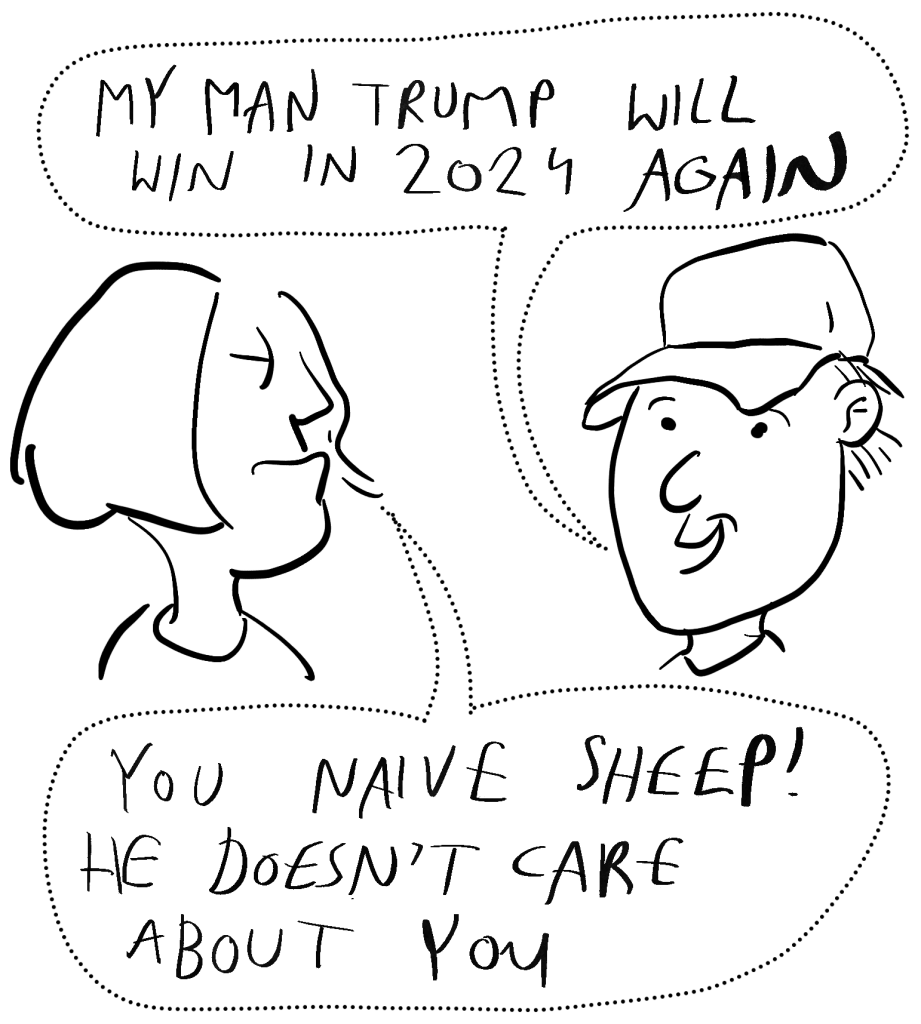 MY MAN TRUMP WILL
WIN IN 2024 AGAIN
YOU NAIVE SHEEP!
HE DOESN'T CARE
ABOUT YOU